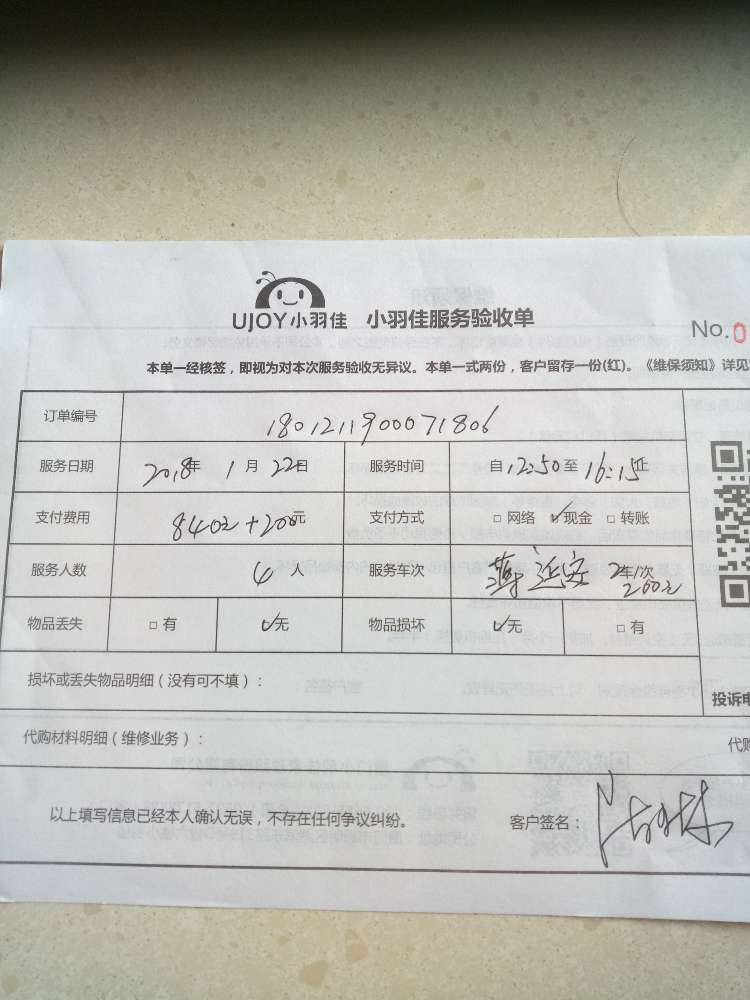 UJOY小羽佳 小羽佳服务验收单
No.0
本单一经核签，即视为对本次服务验收无异议。本单一式两份，客户留存一份(红)。《维保须知》详见
订单编号 1801211900071806
服务日期 2018年 1月 22日 服务时间 自12:50至16:15止
支付费用 840元+200元 支付方式 □ 网络 ☑现金 □ 转账
服务人数 4人 服务车次 2车1次
200元
物品丢失 □ 有 ☑无 物品损坏 ☑无 □ 有
损坏或丢失物品明细（没有可不填）：
投诉电
代购材料明细（维修业务）：
代购
以上填写信息已经本人确认无误，不存在任何争议纠纷。 客户签名：